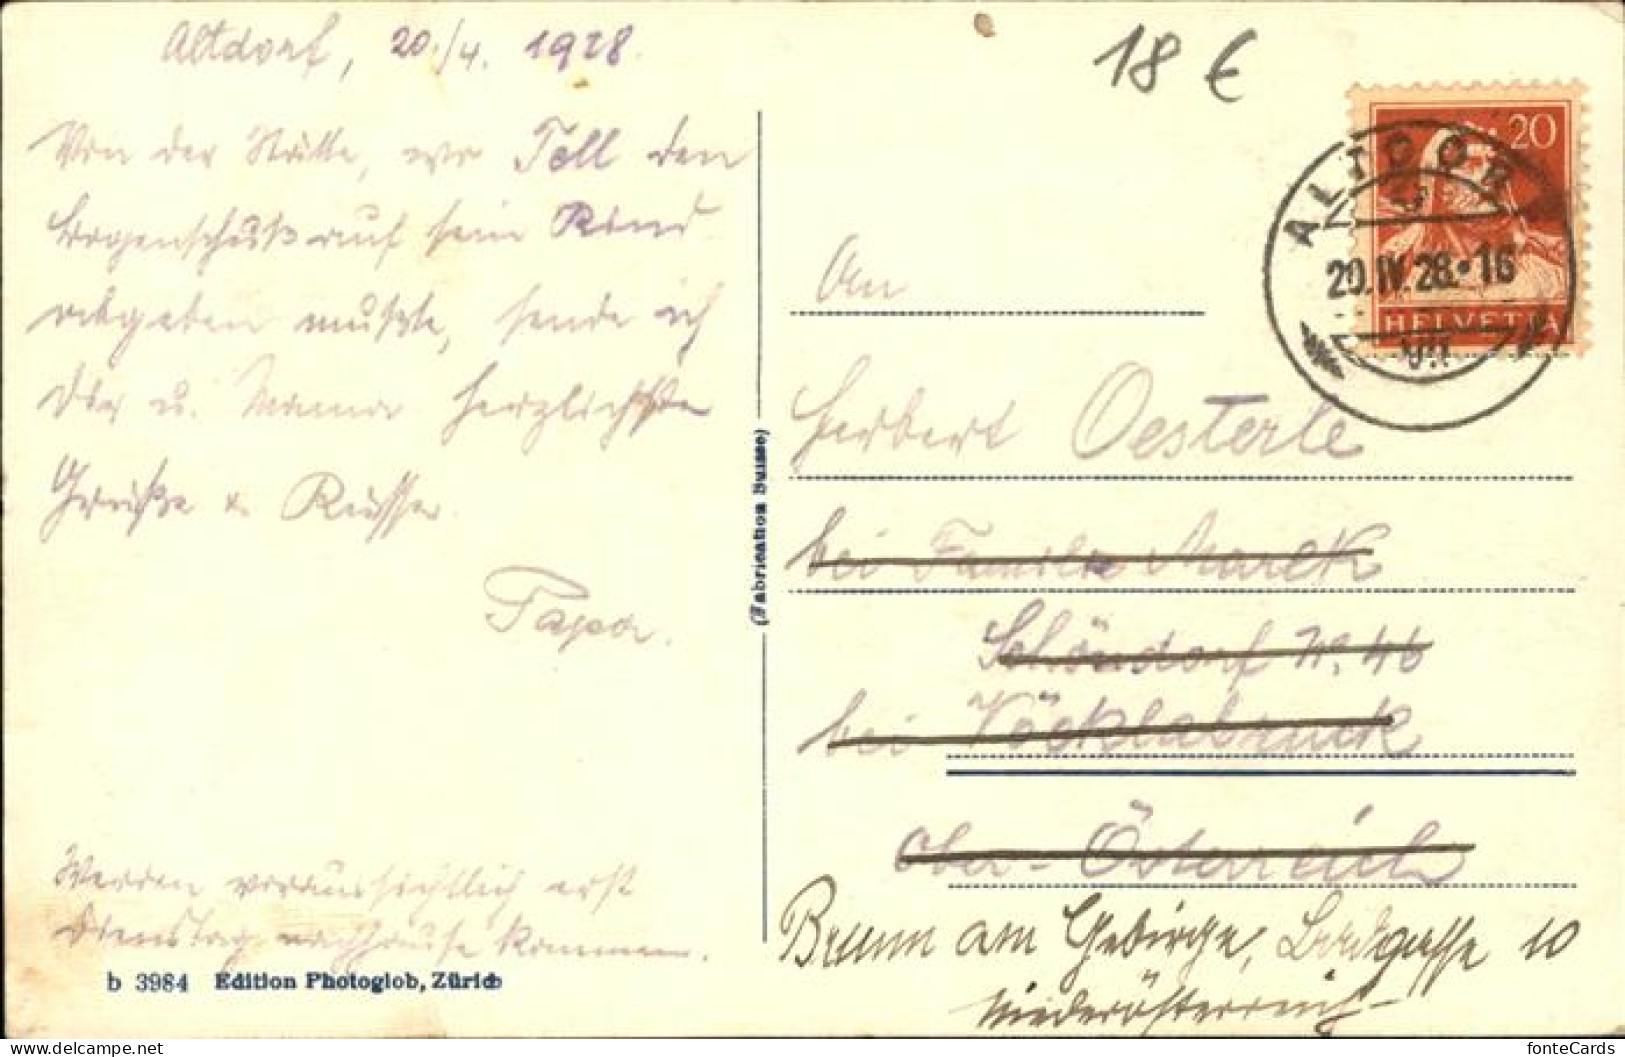 Altdorf, 20./4. 1928.
Von der Stätte, wo Tell den
Bogenschuß auf sein Kind
abgeben mußte, sende ich
Dir u. Mama herzlichste
Grüße u. Küsse.
Papa.
Werden voraussichtlich erst
Dienstag nachhause kommen.
b 3984 Edition Photoglob, Zürich
(Fabrication Suisse)
18 €
20
HELVETIA
ALTDORF
20.IV.28.·16
An
Herbert Oesterle
bei Familie Marek
Schöndorf Nr. 46
bei Vöcklabruck
Ober-Österreich
Brunn am Gebirge, 10
Niederösterreich
www.delcampe.net
fonteCards